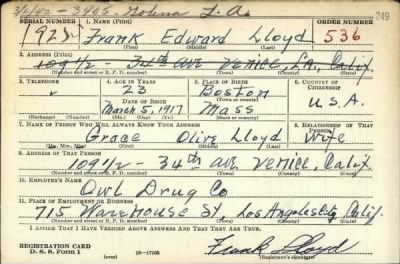 249
SERIAL NUMBER 1. NAME (Print) ORDER NUMBER
Frank Edward Lloyd 536
(First) (Middle) (Last)
2. ADDRESS (Print)
109 1/2 - 34th Ave Venice, L.A. Calif.
(Number and street or R. F. D. number) (Town) (County) (State)
3. TELEPHONE 4. AGE IN YEARS 5. PLACE OF BIRTH 6. COUNTRY OF CITIZENSHIP
23 Boston
(Town or county)
DATE OF BIRTH
March 5, 1917 Mass U.S.A.
(Exchange) (No.) (Mo.) (Day) (Yr.) (State or country)
7. NAME OF PERSON WHO WILL ALWAYS KNOW YOUR ADDRESS 8. RELATIONSHIP OF THAT PERSON
Grace Olive Lloyd Wife
(Mr., Mrs., Miss) (First) (Middle) (Last)
9. ADDRESS OF THAT PERSON
109 1/2 - 34th Ave. Venice, Calif.
(Number and street or R. F. D. number) (Town) (County) (State)
10. EMPLOYER'S NAME
Owl Drug Co
11. PLACE OF EMPLOYMENT OR BUSINESS
715 Warehouse St Los Angeles City Calif.
(Number and street or R. F. D. number) (Town) (County) (State)
I AFFIRM THAT I HAVE VERIFIED ABOVE ANSWERS AND THAT THEY ARE TRUE.
REGISTRATION CARD
D. S. S. Form 1 (over) 16-17105 Frank Lloyd
(Registrant's signature)